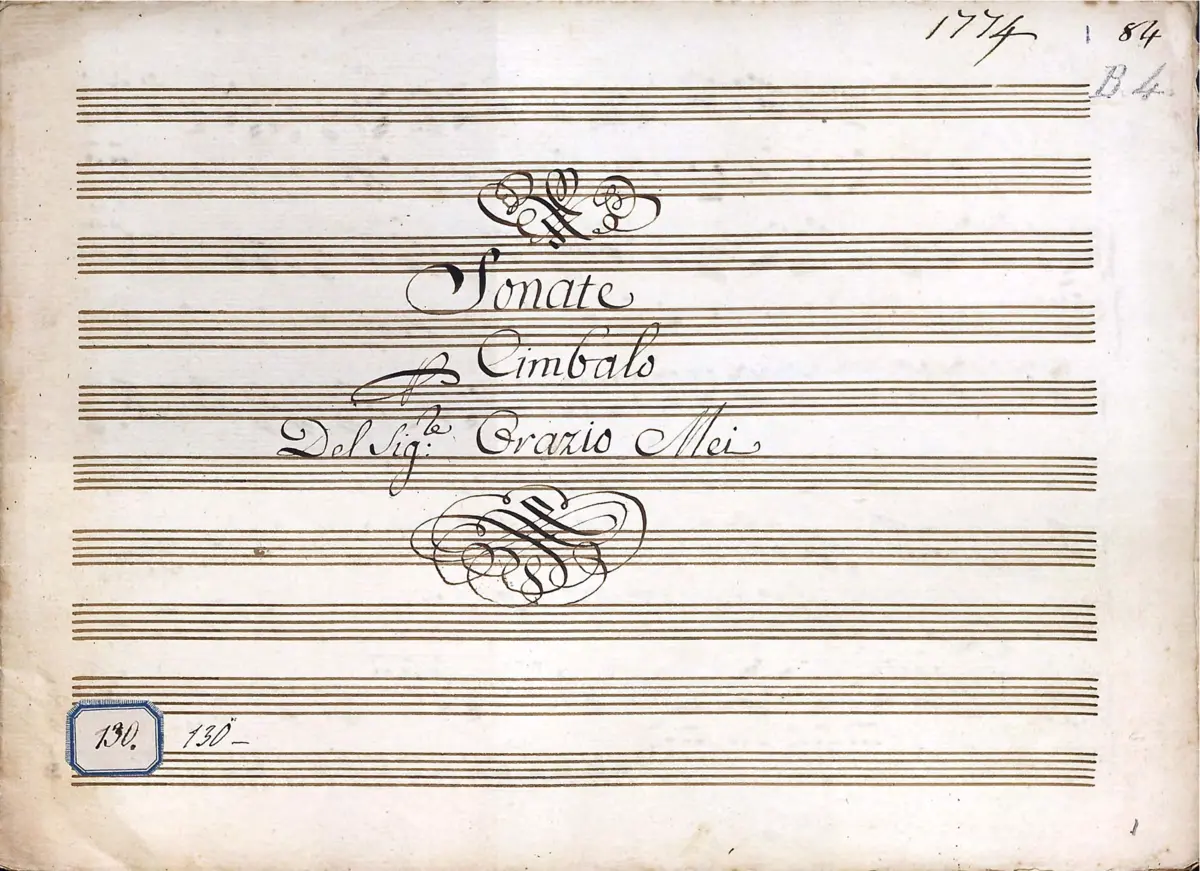 1774 1 84
B. 4
Sonate
Cimbalo
Del Sig:re Orazio Mei
130. 130
1